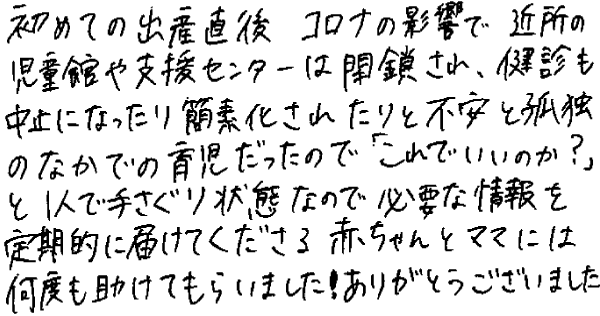 初めての出産直後 コロナの影響で 近所の
児童館や支援センターは閉鎖され、健診も
中止になったり簡素化されたりと不安と孤独
のなかでの育児だったので「これでいいのか？」
と1人で手さぐり状態なので必要な情報を
定期的に届けてくださる 赤ちゃんとママには
何度も助けてもらいました！ありがとうございました